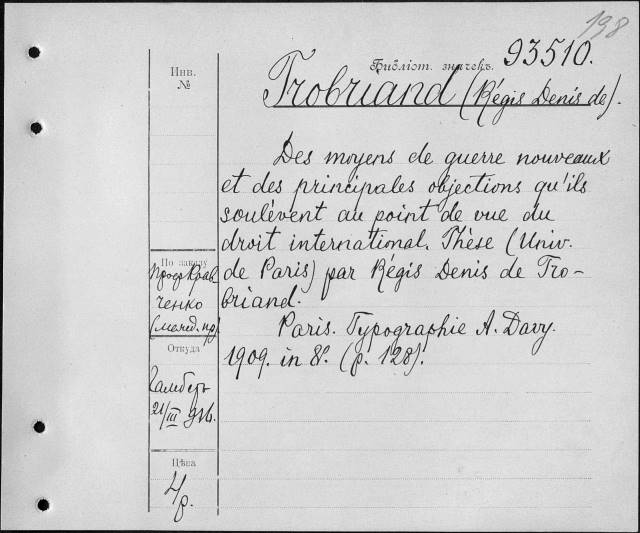 198
Библіот. значекъ. 93510.
Инв.
№
Trobriand (Régis Denis de).
Des moyens de guerre nouveaux
et des principales objections qu'ils
soulèvent au point de vue du
droit international. Thèse (Univ.
de Paris) par Régis Denis de Tro-
briand.
Paris. Typographie A. Davy.
1909. in 8°. (p. 128).
По заказу
Проф Крав
ченко
(межд. пр)
Откуда
21/III
Цѣна
4 р.